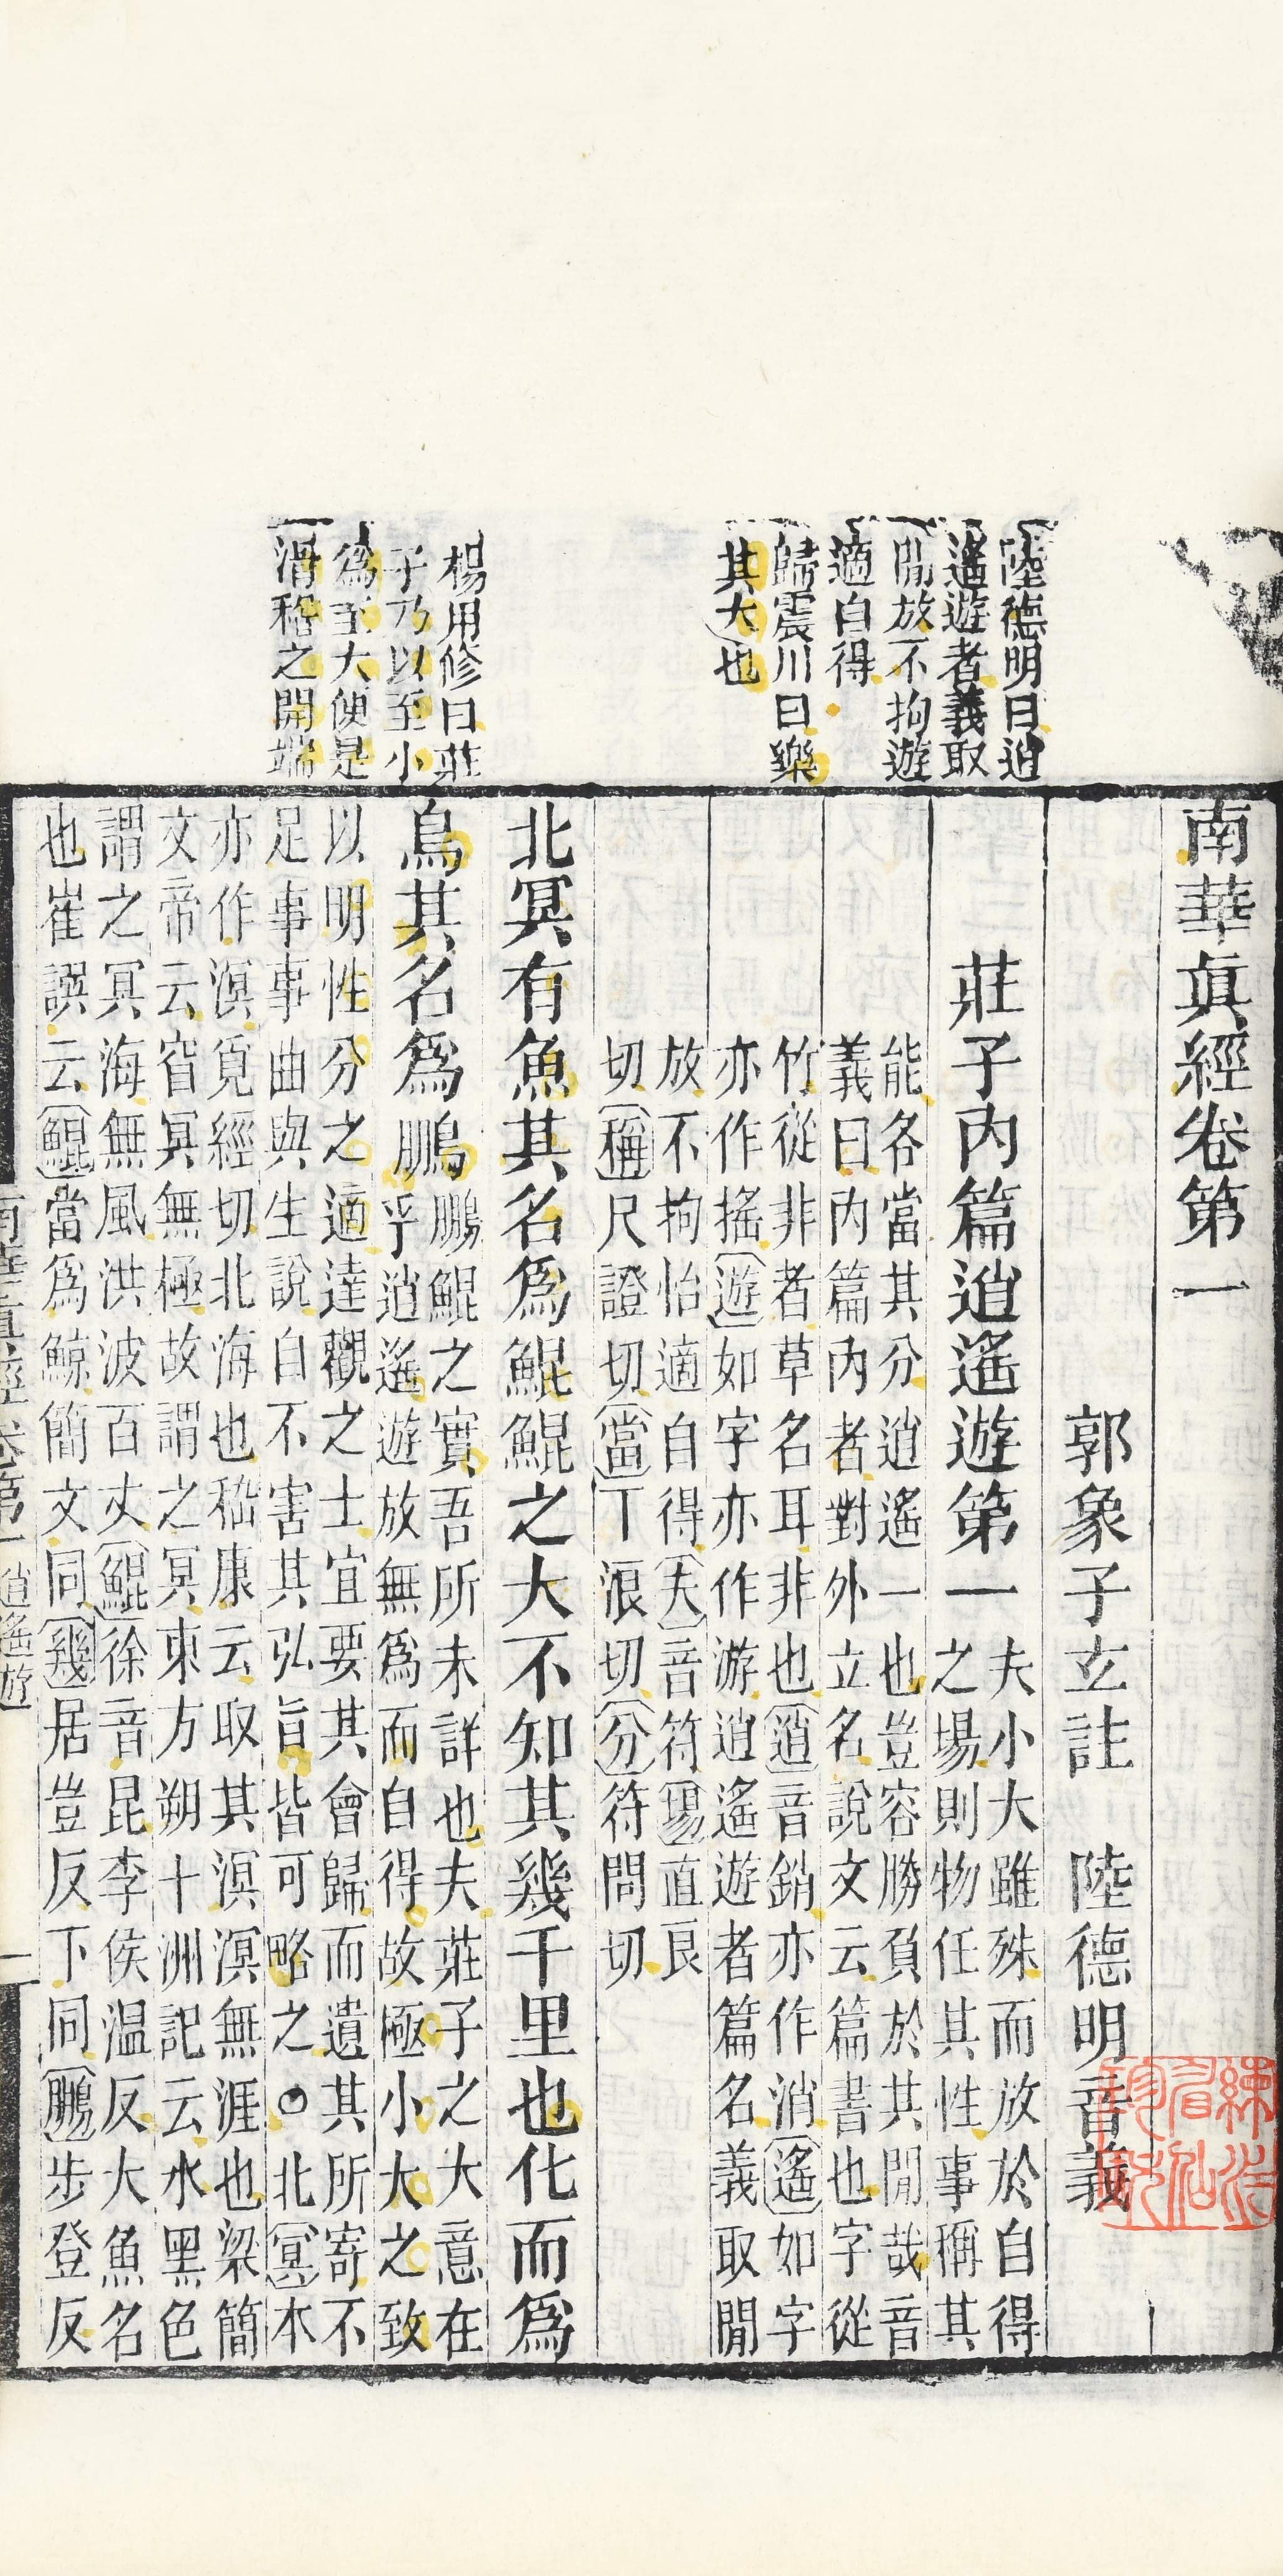 陸德明曰逍
遙遊者義取
閒放不拘遊
適自得
歸震川曰樂
其大也
楊用修曰莊
子乃以至小
爲至大便是
滑稽之開端
南華眞經卷第一
郭象子玄註 陸德明音義
莊子内篇逍遙遊第一
夫小大雖殊而放於自得
之場則物任其性事稱其
能各當其分逍遙一也豈容勝負於其閒哉音
義曰内篇内者對外立名說文云篇書也字從
竹從非者草名耳非也逍音銷亦作消遙如字
亦作搖遊如字亦作游逍遙遊者篇名義取閒
放不拘怡適自得夫音符場直良
切稱尺證切當丁浪切分符問切
北冥有魚其名爲鯤鯤之大不知其幾千里也化而爲
鳥其名爲鵬
鵬鯤之實吾所未詳也夫莊子之大意在
乎逍遙遊放無爲而自得故極小大之致
以明性分之適達觀之士宜要其會歸而遺其所寄不
足事事曲與生說自不害其弘旨皆可略之○北冥本
亦作溟覓經切北海也嵇康云取其溟溟無涯也梁簡
文帝云窅冥無極故謂之冥東方朔十洲記云水黑色
謂之冥海無風洪波百丈鯤徐音昆李侯温反大魚名
也崔譔云鯤當爲鯨簡文同幾居豈反下同鵬步登反
南華眞經卷第一 逍遙遊 一